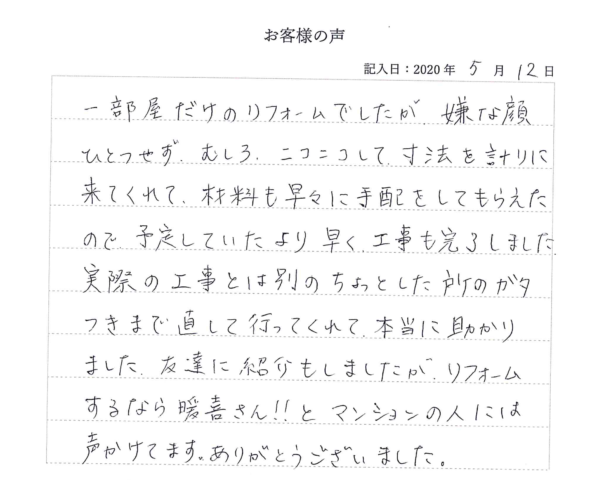 お客様の声
記入日：2020年 5月 12日
一部屋だけのリフォームでしたが、嫌な顔
ひとつせず、むしろ、ニコニコして、寸法を計りに
来てくれて、材料も早々に手配をしてもらえた
ので、予定していたより早く、工事も完了しました
実際の工事とは別のちょっとした所のガタ
つきまで直して行ってくれて、本当に助かり
ました、友達に紹介もしましたが、リフォーム
するなら暖喜さん!!と マンションの人には
声かけてます。ありがとうございました。